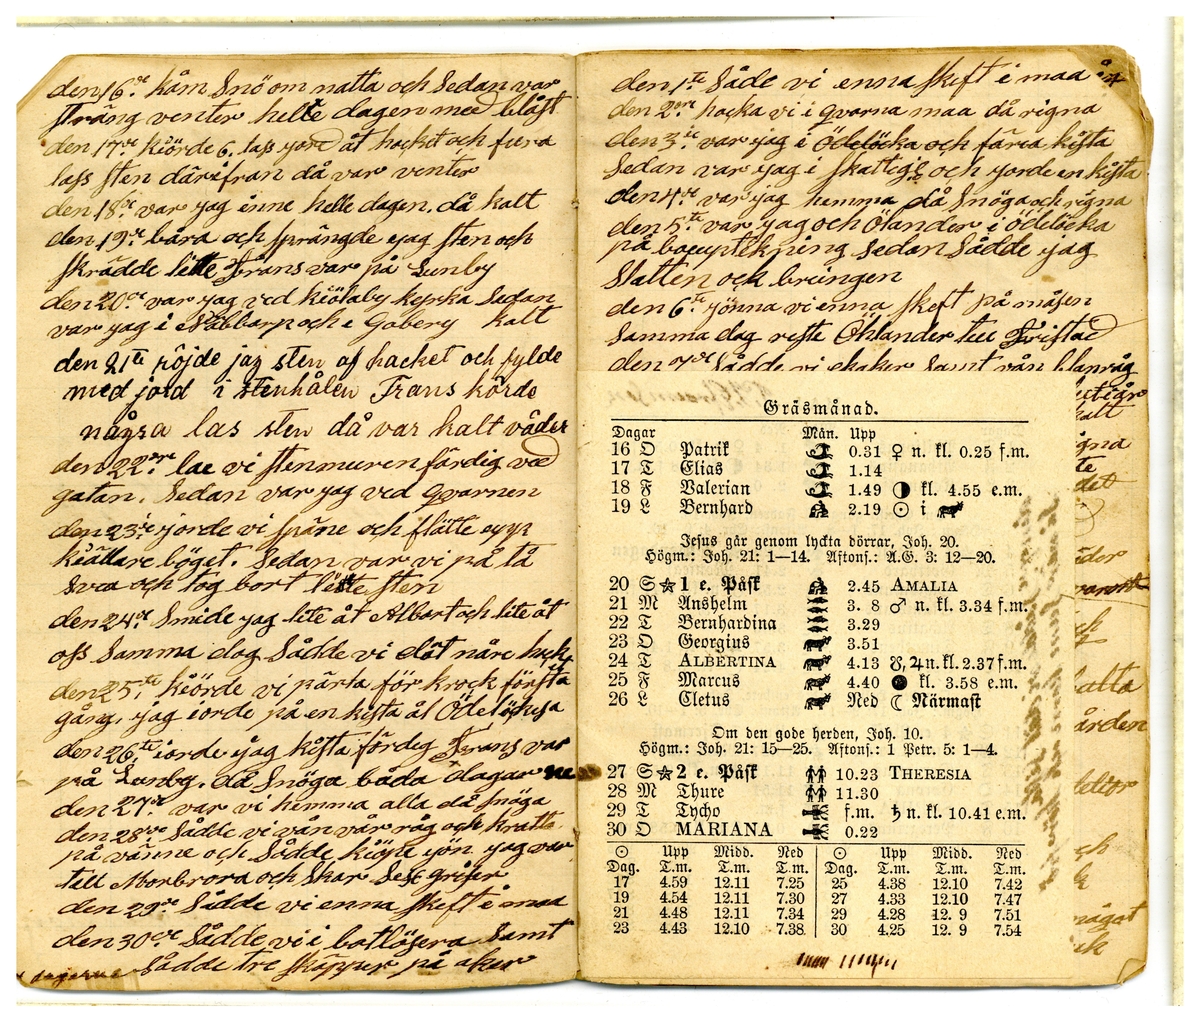 den 16de kåm Snö om natta och Sedan var
sträng venter helle dagen med blåst
den 17de kiörde 6. lass jord åt hacket och fiera
lass sten därifran då var venter
den 18de var jag inne helle dagen. då kalt
den 19de båra och sprängde ejag sten och
skrädde litte Frans var på Lunby
den 20de var jag ved kiölaby kyrka Sedan
var jag i Nabbarp och i Goberg kalt
den 21te röjde jag sten af hacket och fylde
med jord i stenhålen Frans körde
några las sten då var kalt väder
den 22dre lae vi stenmuren färdig ved
gatan. Sedan var jag ved qvarnen
den 23ie jorde vi späne och flätte upp
kiällare böget. Sedan var vi på tå
Svea och tog bort litte sten
den 24de Smide jag lite åt Albart och lite åt
oss Samma dag Sådde vi dåt nåre hack
den 25te kiörde vi pärta för krock första
gång. jag iorde på en kista åt Ödelöcksa
den 26te iorde ejag kista färdig Frans var
på Lunby. då Snöga båda dagarne
den 27de var vi hemma alla då snöga
den 28de Sådde vi vån vår råg och kratta
på vänne och Sådde kiöste hön jag var
till Morbrora och skar Sex griser
den 29de Sådde vi enna skeft i maa
den 30de Sådde vi i botlösera Samt
dagarne Sådde tre skäppur på aker
den 1te Såde vi enna skeft i maa
den 2dre hacka vi i qvarna maa då rigna
den 3ie var jag i Ödelöcka och färia kista
Sedan var ejag i skattegå och jorde en kista
den 4de var jag hemma då Snöga och rigna
den 5te var jag och Ölander i Ödelöcka
på boupteckning Sedan Sådde ejag
Slatten och bringen
den 6te jönna vi enna skeft på måsen
Samma dag reste Öhlander till Fristad
den 7de Sådde vi ekaker Samt vån blanråg
Gräsmånad.
Dagar Mån. Upp
16 O Patrik 0.31 ♀ n. kl. 0.25 f.m.
17 T Elias 1.14
18 F Valerian 1.49 ◑ kl. 4.55 e.m.
19 L Bernhard 2.19 ☉ i
Jesus går genom lyckta dörrar, Joh. 20.
Högm.: Joh. 21: 1—14. Aftons.: A.G. 3: 12—20.
20 S ★ 1 e. Påsk 2.45 AMALIA
21 M Anshelm 3. 8 ♂ n. kl. 3.34 f.m.
22 T Bernhardina 3.29
23 O Georgius 3.51
24 T ALBERTINA 4.13 ☋, ♃ n. kl. 2.37 f.m.
25 F Marcus 4.40 ● kl. 3.58 e.m.
26 L Cletus Ned ☾ Närmast
Om den gode herden, Joh. 10.
Högm.: Joh. 21: 15—25. Aftons.: 1 Petr. 5: 1—4.
27 S ★ 2 e. Påsk 10.23 THERESIA
28 M Thure 11.30
29 T Tycho f.m. ♄ n. kl. 10.41 e.m.
30 O MARIANA 0.22
☉ Upp Midd. Ned ☉ Upp Midd. Ned
Dag. T.m. T.m. T.m. Dag. T.m. T.m. T.m.
17 4.59 12.11 7.25 25 4.38 12.10 7.42
19 4.54 12.11 7.30 27 4.33 12.10 7.47
21 4.48 12.11 7.34 29 4.28 12. 9 7.51
23 4.43 12.10 7.38 30 4.25 12. 9 7.54